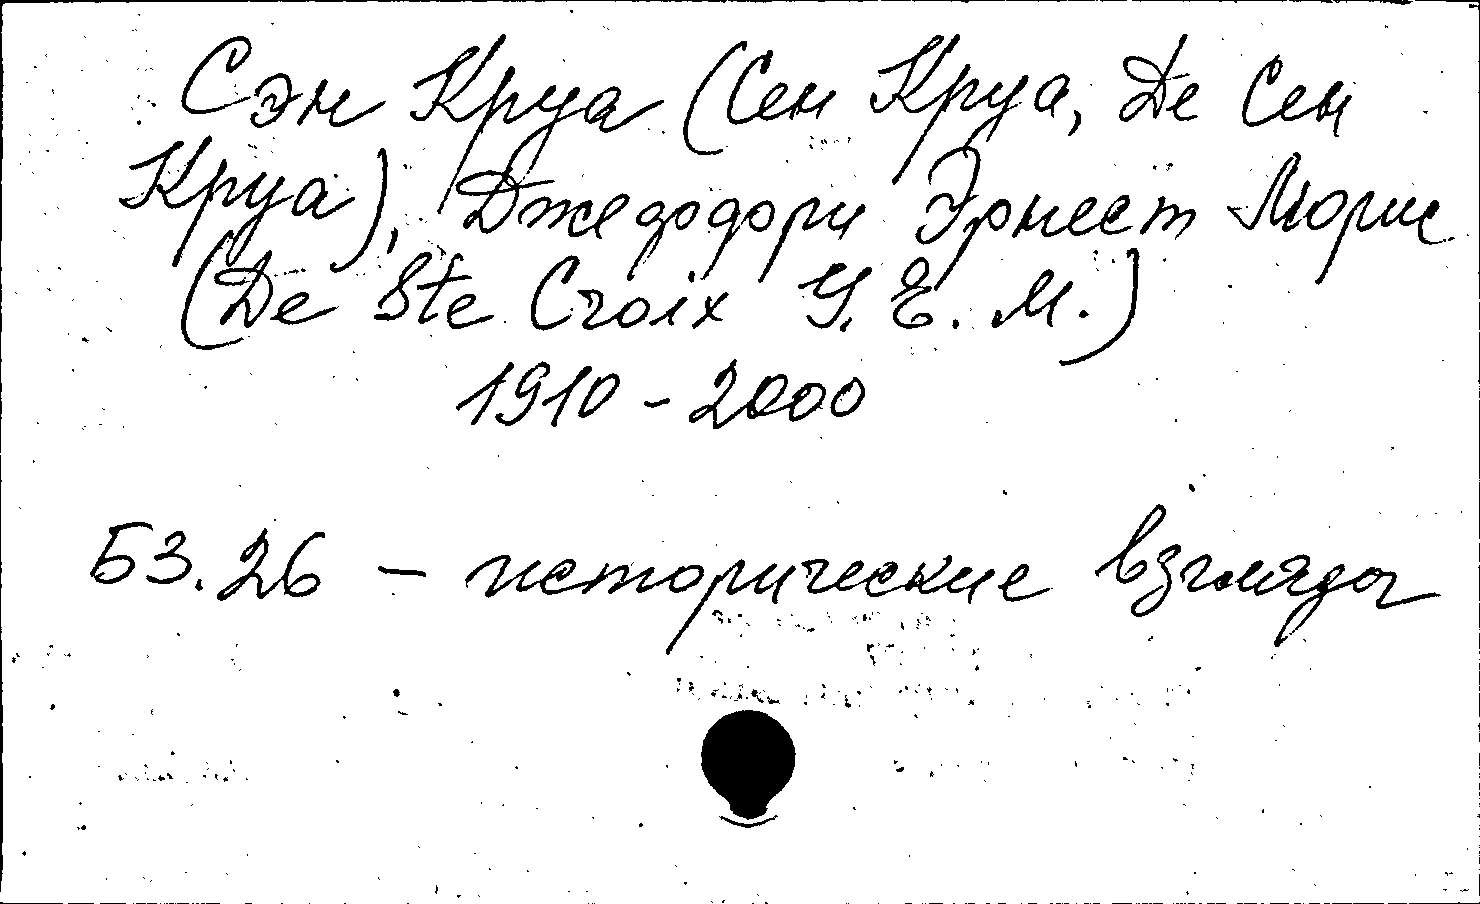 Сэн Круа (Сен Круа, Де Сен
Круа), Джедодори Эрнест Морис
(De Ste Croix G. E. M.)
1910 - 2000
Б3.26 - исторические взгляды